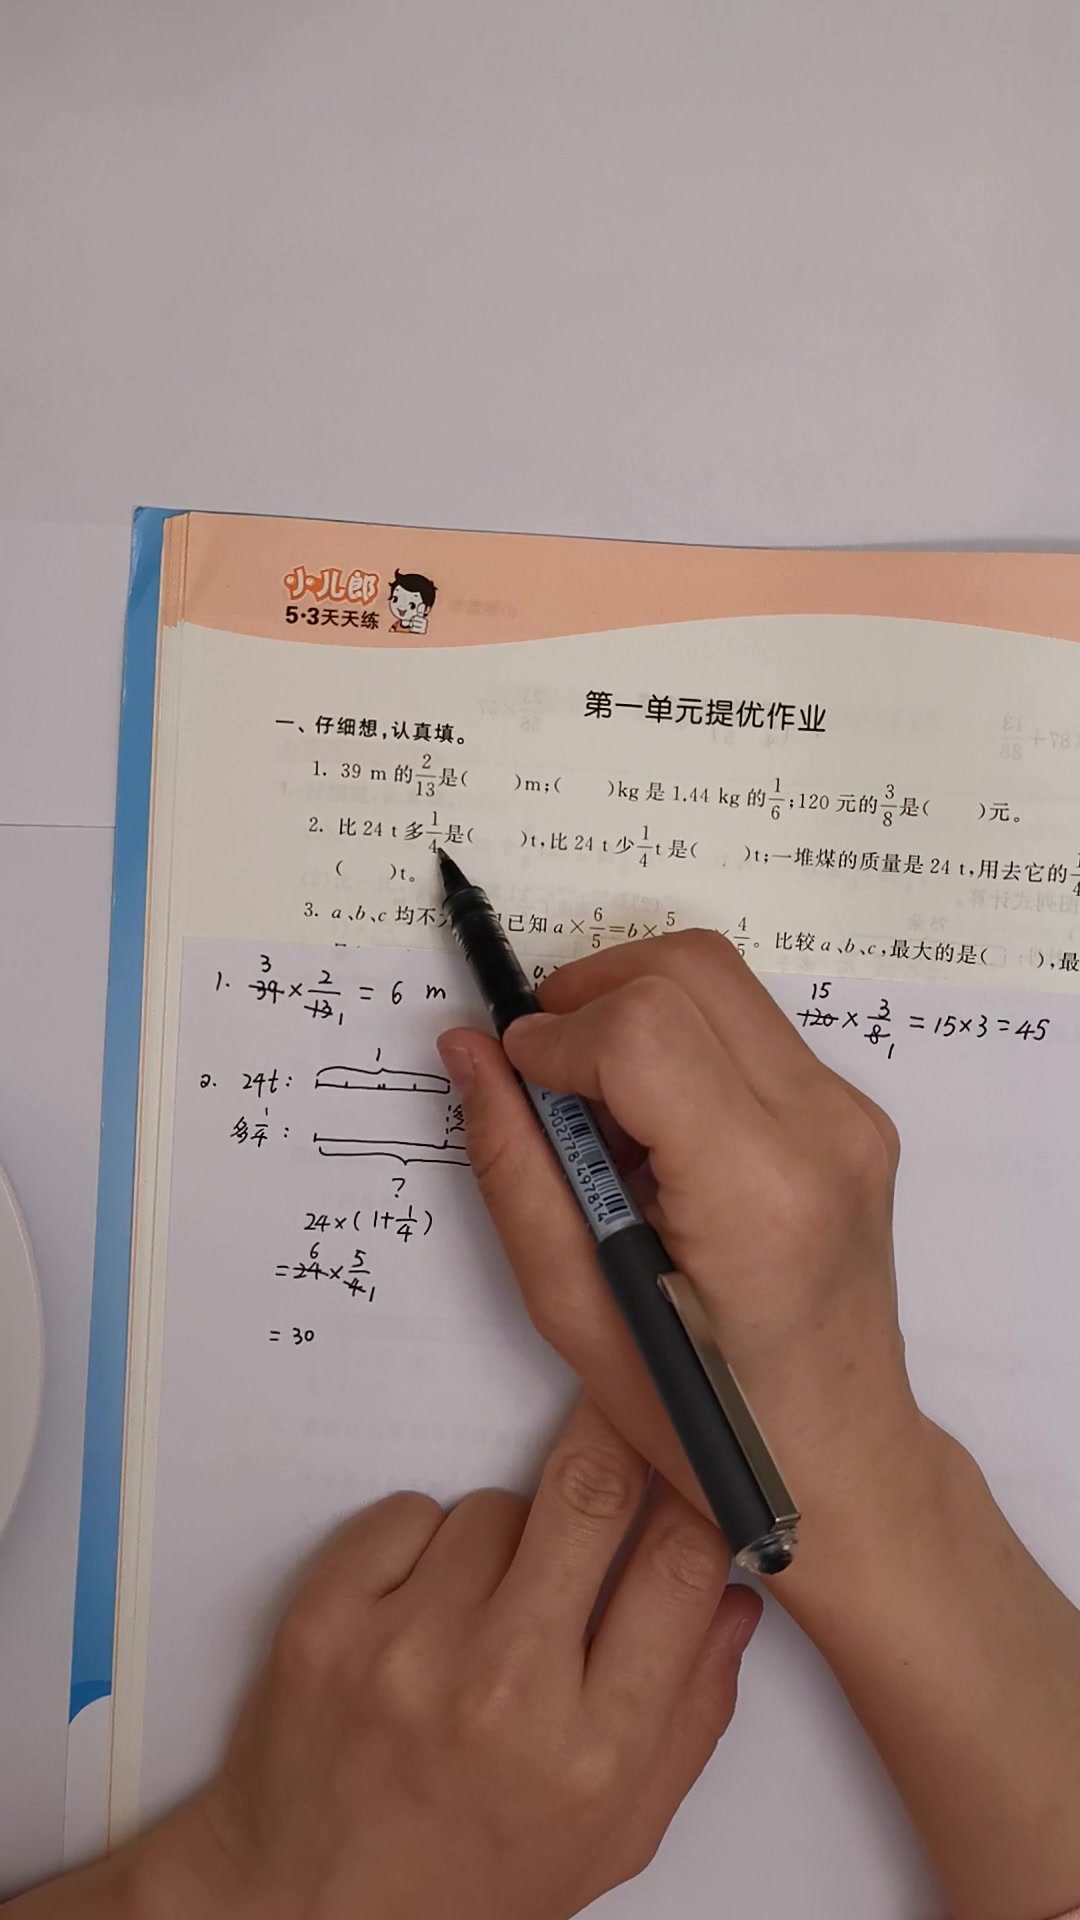 小儿郎
5·3天天练
第一单元提优作业
一、仔细想,认真填。
1. 39 m 的2/13是(    )m;(    )kg 是 1.44 kg 的1/6;120 元的3/8是(    )元。
2. 比 24 t 多1/4是(    )t,比 24 t 少1/4 t 是(    )t;一堆煤的质量是 24 t,用去它的1/4
(    )t。
3. a、b、c 均不 已知 a×6/5=b×5 ×4/5。比较 a、b、c,最大的是(    ),最
1. 39×2/13 = 6 m
3
1
120×3/8 = 15×3 = 45
15
1
2. 24t:
1
多1/4:
?
24×(1+1/4)
= 24×5/4
6
1
= 30
4 902778 497814